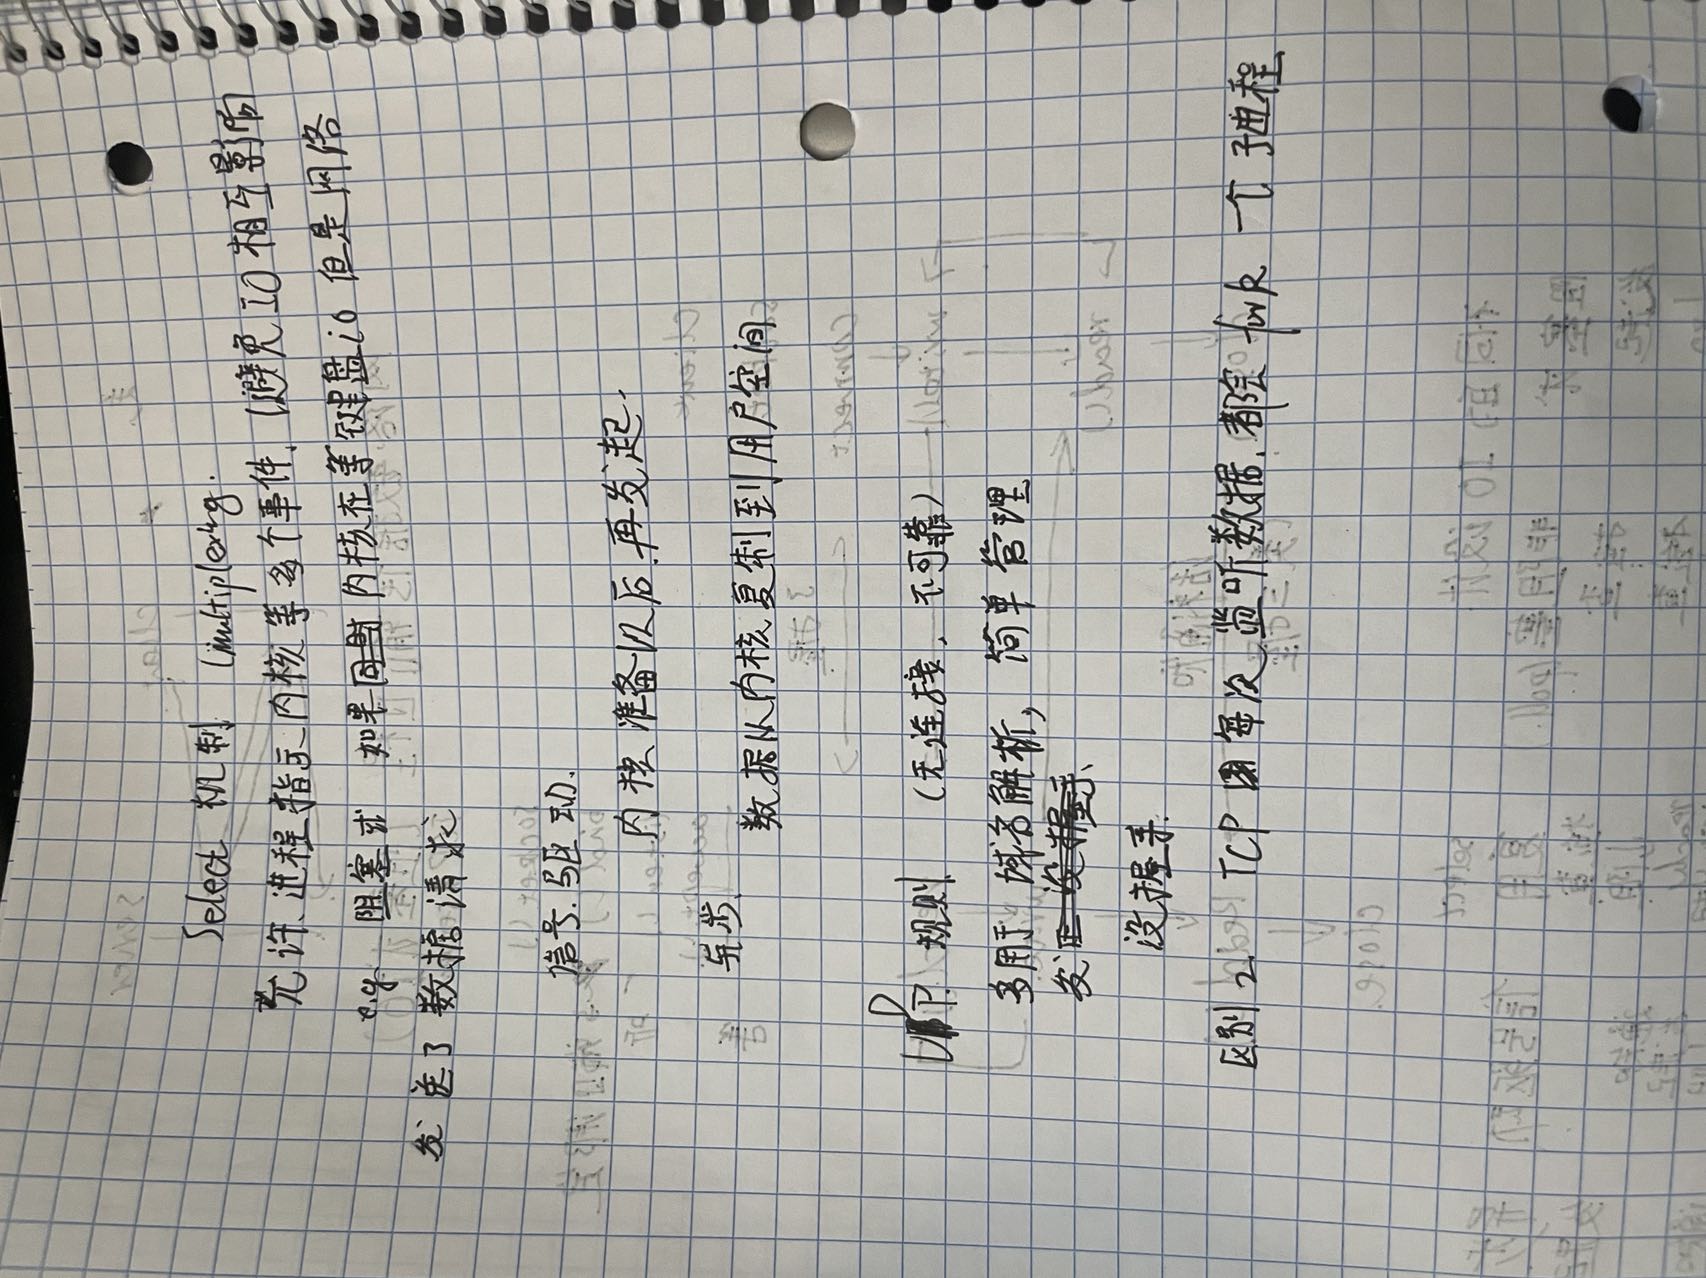 Select 机制 (multiplexing.
允许、进程指示内核等多个事件. (避免 IO 相互影响
e.g. 阻塞式 如果同时内核在等键盘io 但是网络
发送了数据请求
信号.驱动.
内核准备以后.再发起.
异步.
数据从内核复制到用户空间
UDP. 规则 (无连接, 不可靠)
多用于 域名解析, 简单管理
没握手
没握手.
区别2. TCP 每次监听数据, 都会 fork 一个子进程